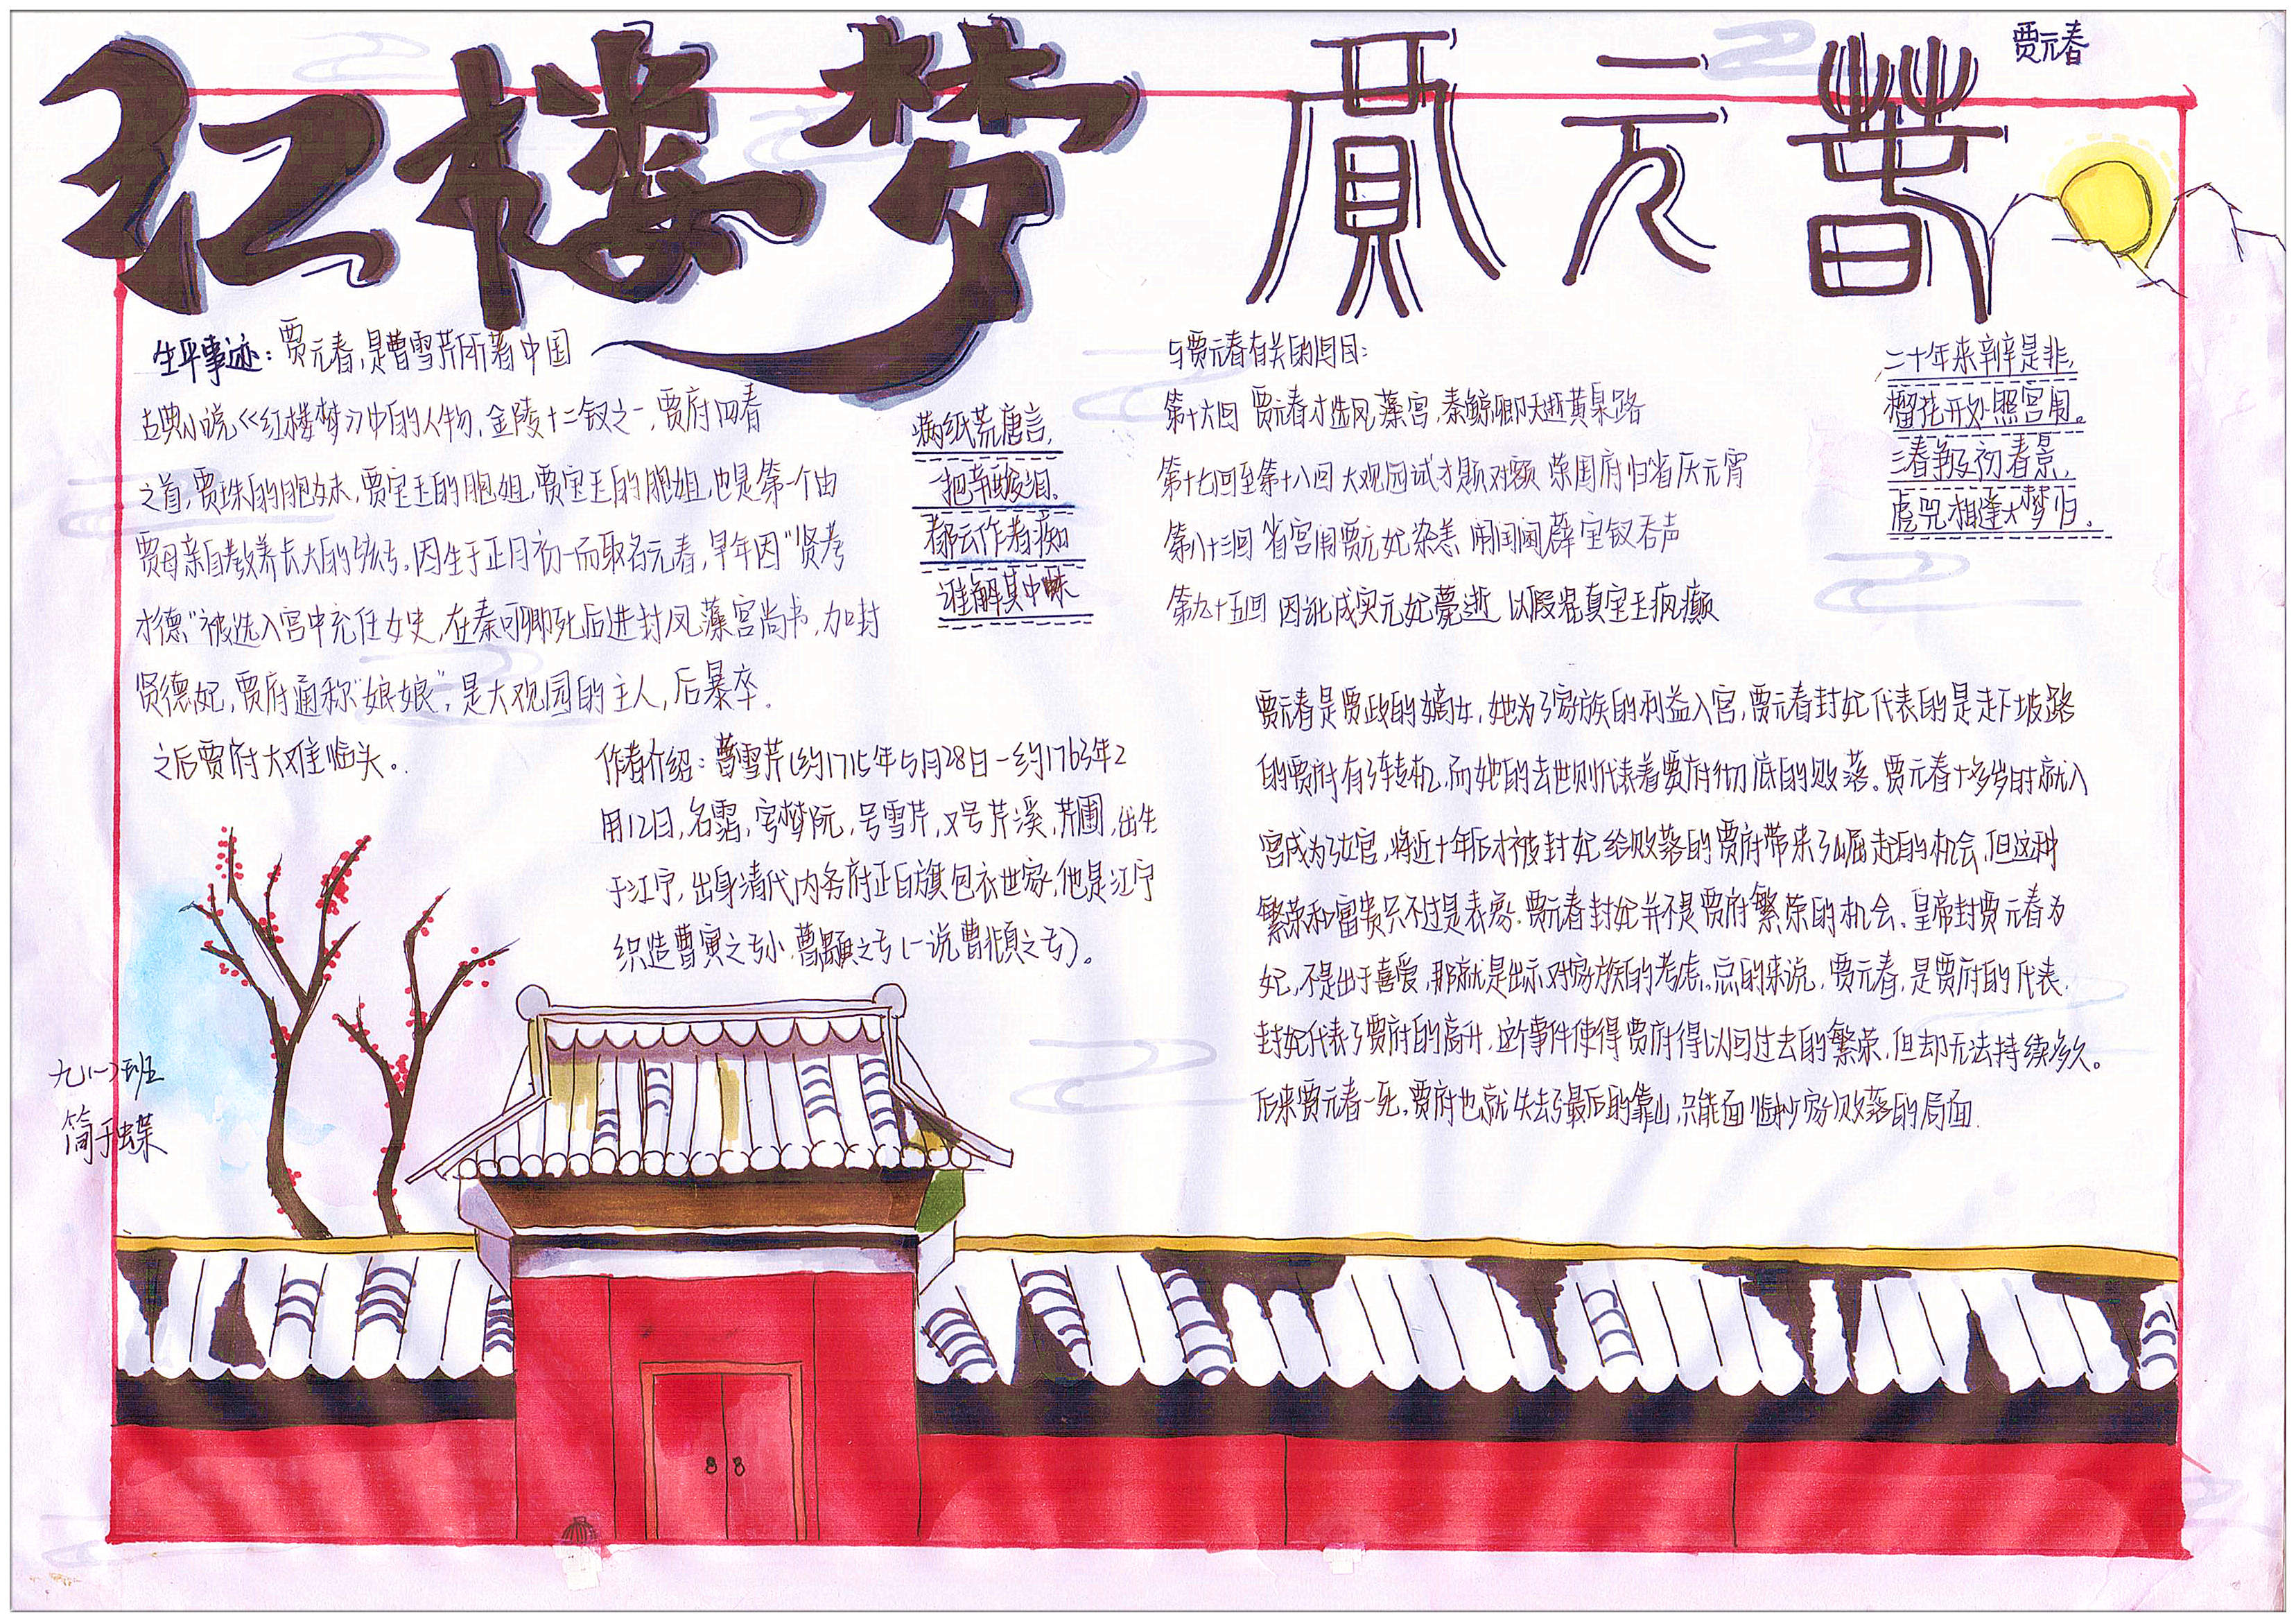 红楼梦
賈元春
贾元春
生平事迹：贾元春，是曹雪芹所著中国
古典小说《红楼梦》中的人物，金陵十二钗之一，贾府四春
之首，贾珠的胞妹，贾宝玉的胞姐，贾宝玉的胞姐，也是第一个由
贾母亲自教养长大的孩子。因生于正月初一而取名元春，早年因“贤孝
才德”被选入宫中充任女史，在秦可卿死后进封凤藻宫尚书，加封
贤德妃，贾府通称“娘娘”，是大观园的主人，后暴卒．
之后贾府大难临头。
满纸荒唐言，
一把辛酸泪。
都云作者痴
谁解其中味
作者介绍：曹雪芹（约1715年5月28日－约1763年2
月12日，名霑，字梦阮，号雪芹，又号芹溪，芹圃，出生
于江宁，出身清代内务府正白旗包衣世家，他是江宁
织造曹寅之孙、曹颙之子（一说曹頫之子）。
与贾元春有关的回目：
第十六回 贾元春才选凤藻宫，秦鲸卿夭逝黄泉路
第十七回至第十八回 大观园试才题对额 荣国府归省庆元宵
第八十三回 省宫闱贾元妃染恙 闹闺阃薛宝钗吞声
第九十五回 因讹成实元妃薨逝 以假混真宝玉疯癫
二十年来辨是非，
榴花开处照宫闱。
三春争及初春景，
虎兕相逢大梦归。
贾元春是贾政的嫡女，她为了家族的利益入宫，贾元春封妃代表的是走下坡路
的贾府有了转机，而她的去世则代表着贾府彻底的败落。贾元春十多岁时就入
宫成为了女官，将近十年后才被封妃给败落的贾府带来了崛起的机会，但这种
繁荣和富贵只不过是表象．贾元春封妃并不是贾府繁荣的机会、皇帝封贾元春为
妃，不是出于喜爱，那就是出示对家族的考虑．总的来说，贾元春，是贾府的代表．
封妃代表了贾府的高升，这个事件使得贾府得以回过去的繁荣，但却无法持续多久。
后来贾元春一死，贾府也就失去了最后的靠山，只能面临抄家败落的局面．
九（一）班
简于蝶